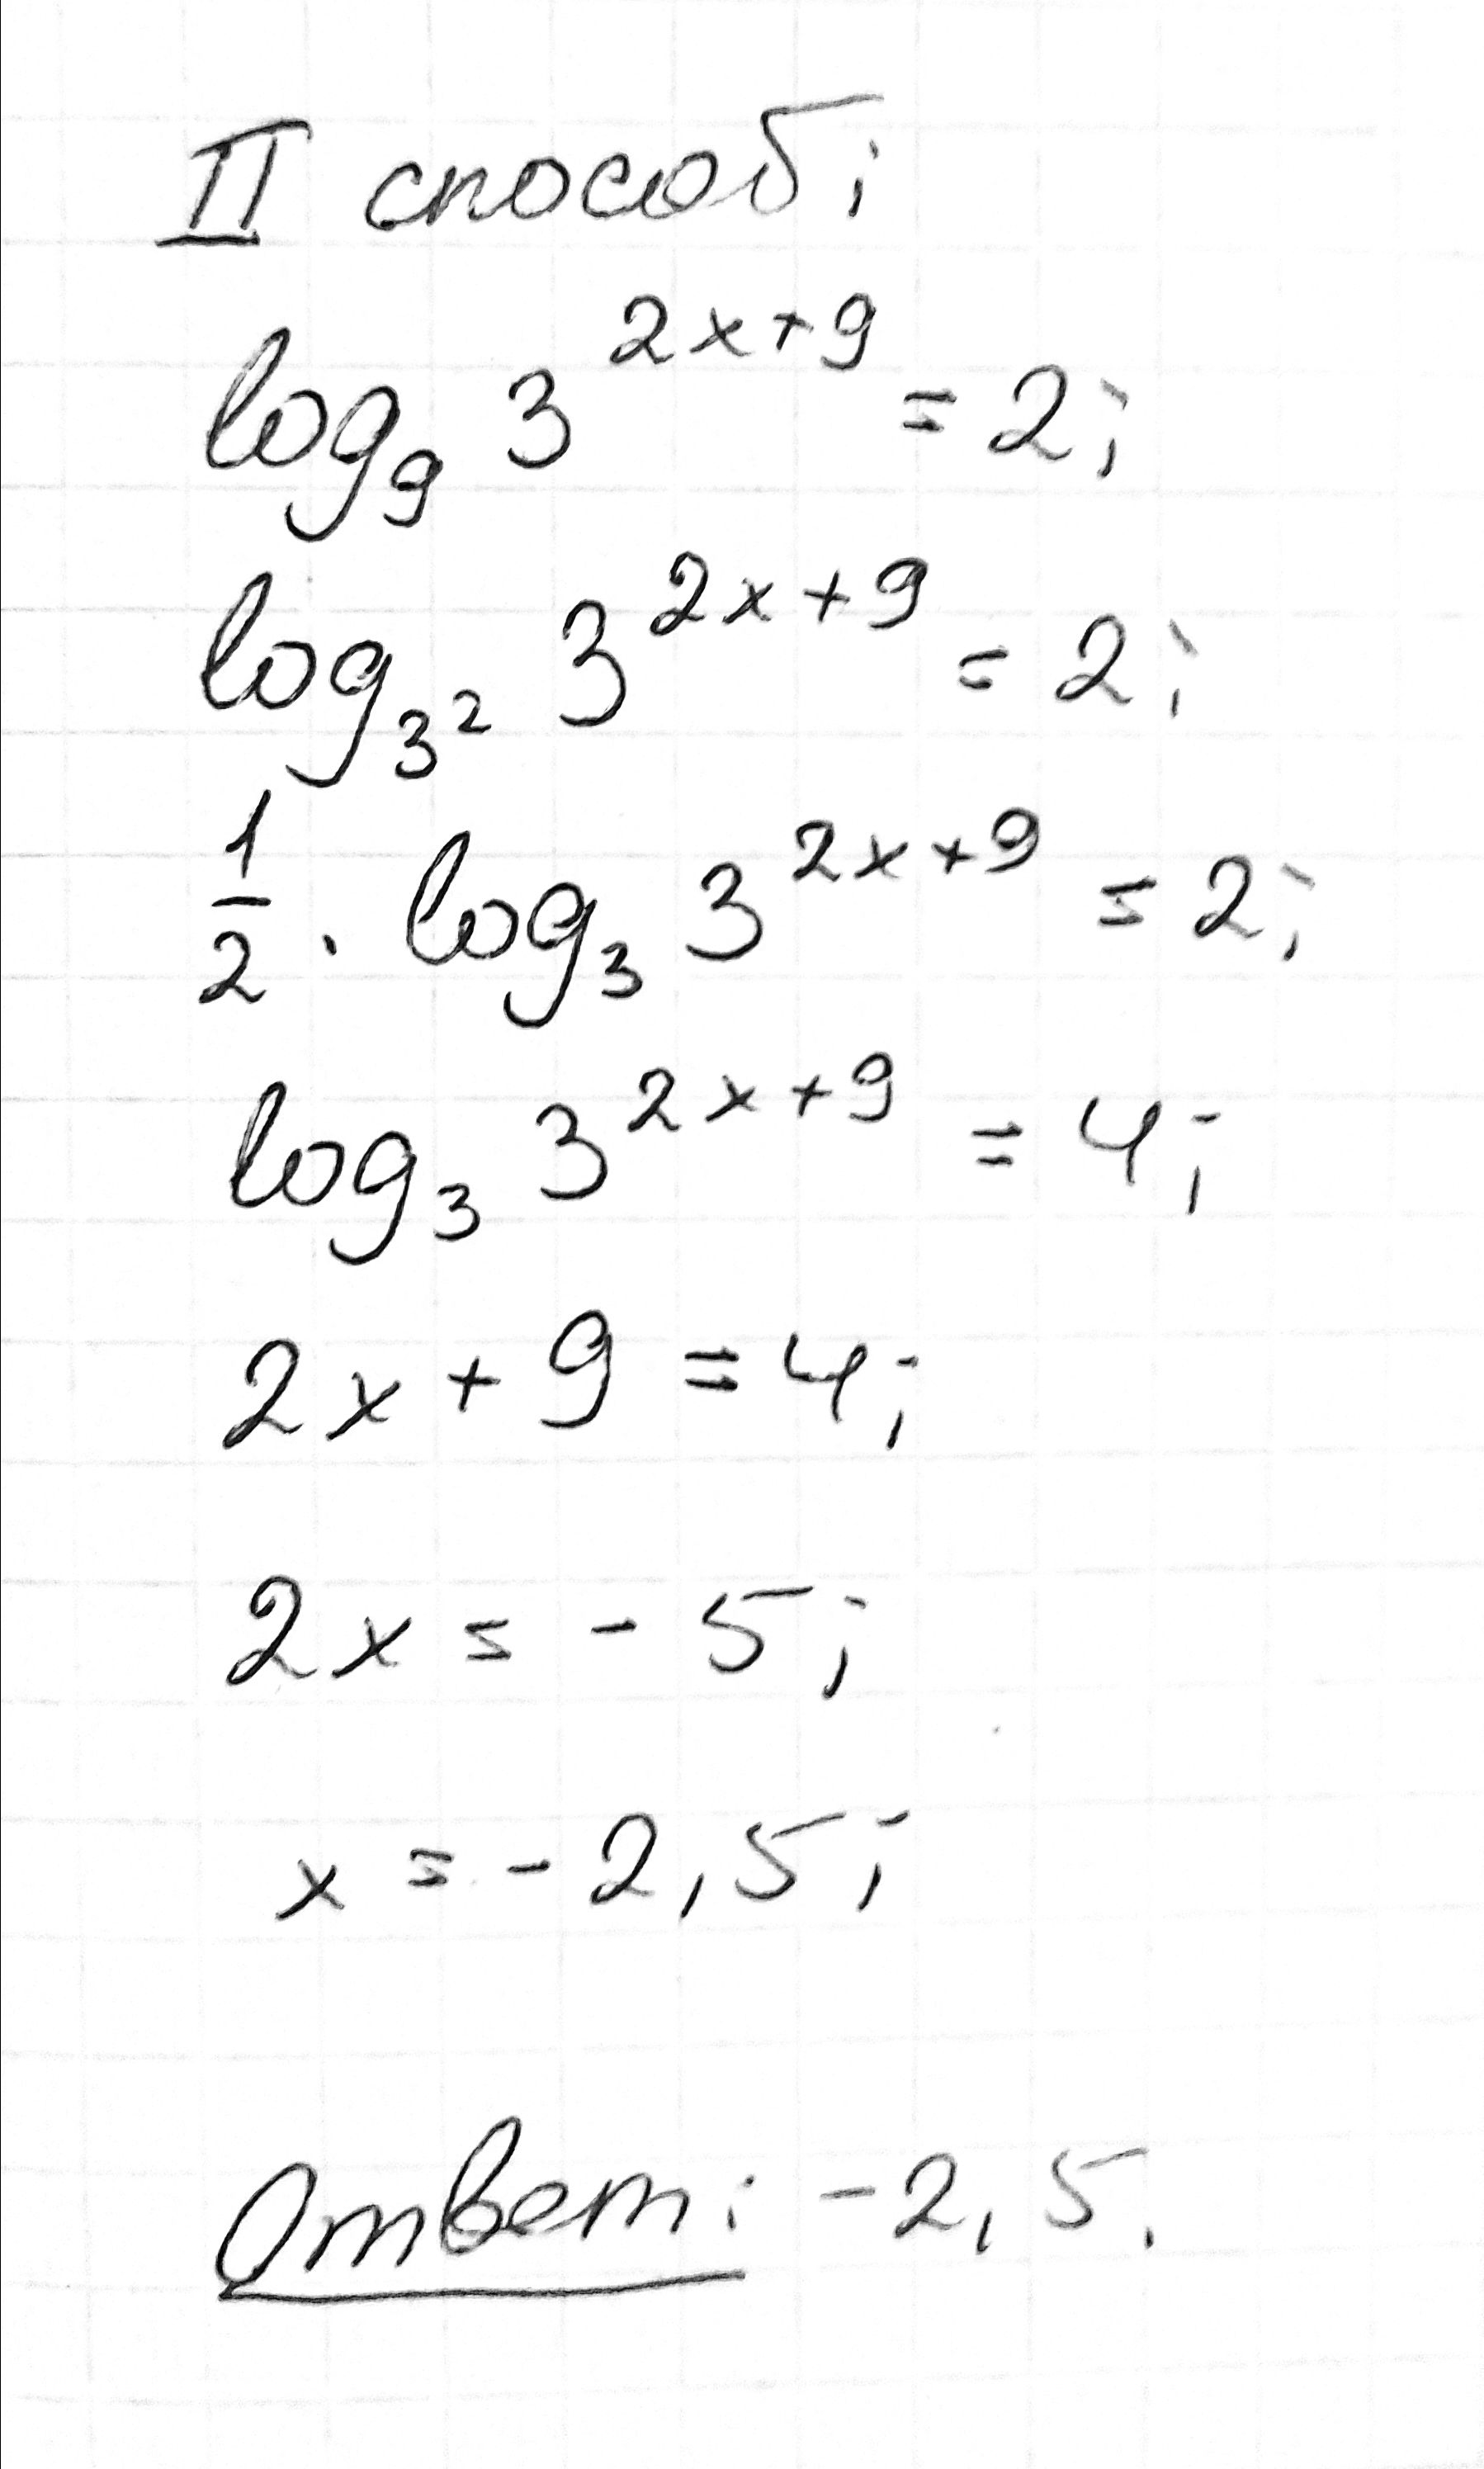 II способ:
log₉ 3^(2x+9) = 2;
log_(3²) 3^(2x+9) = 2;
1/2 · log₃ 3^(2x+9) = 2;
log₃ 3^(2x+9) = 4;
2x + 9 = 4;
2x = - 5;
x = - 2,5;
Ответ: -2,5.